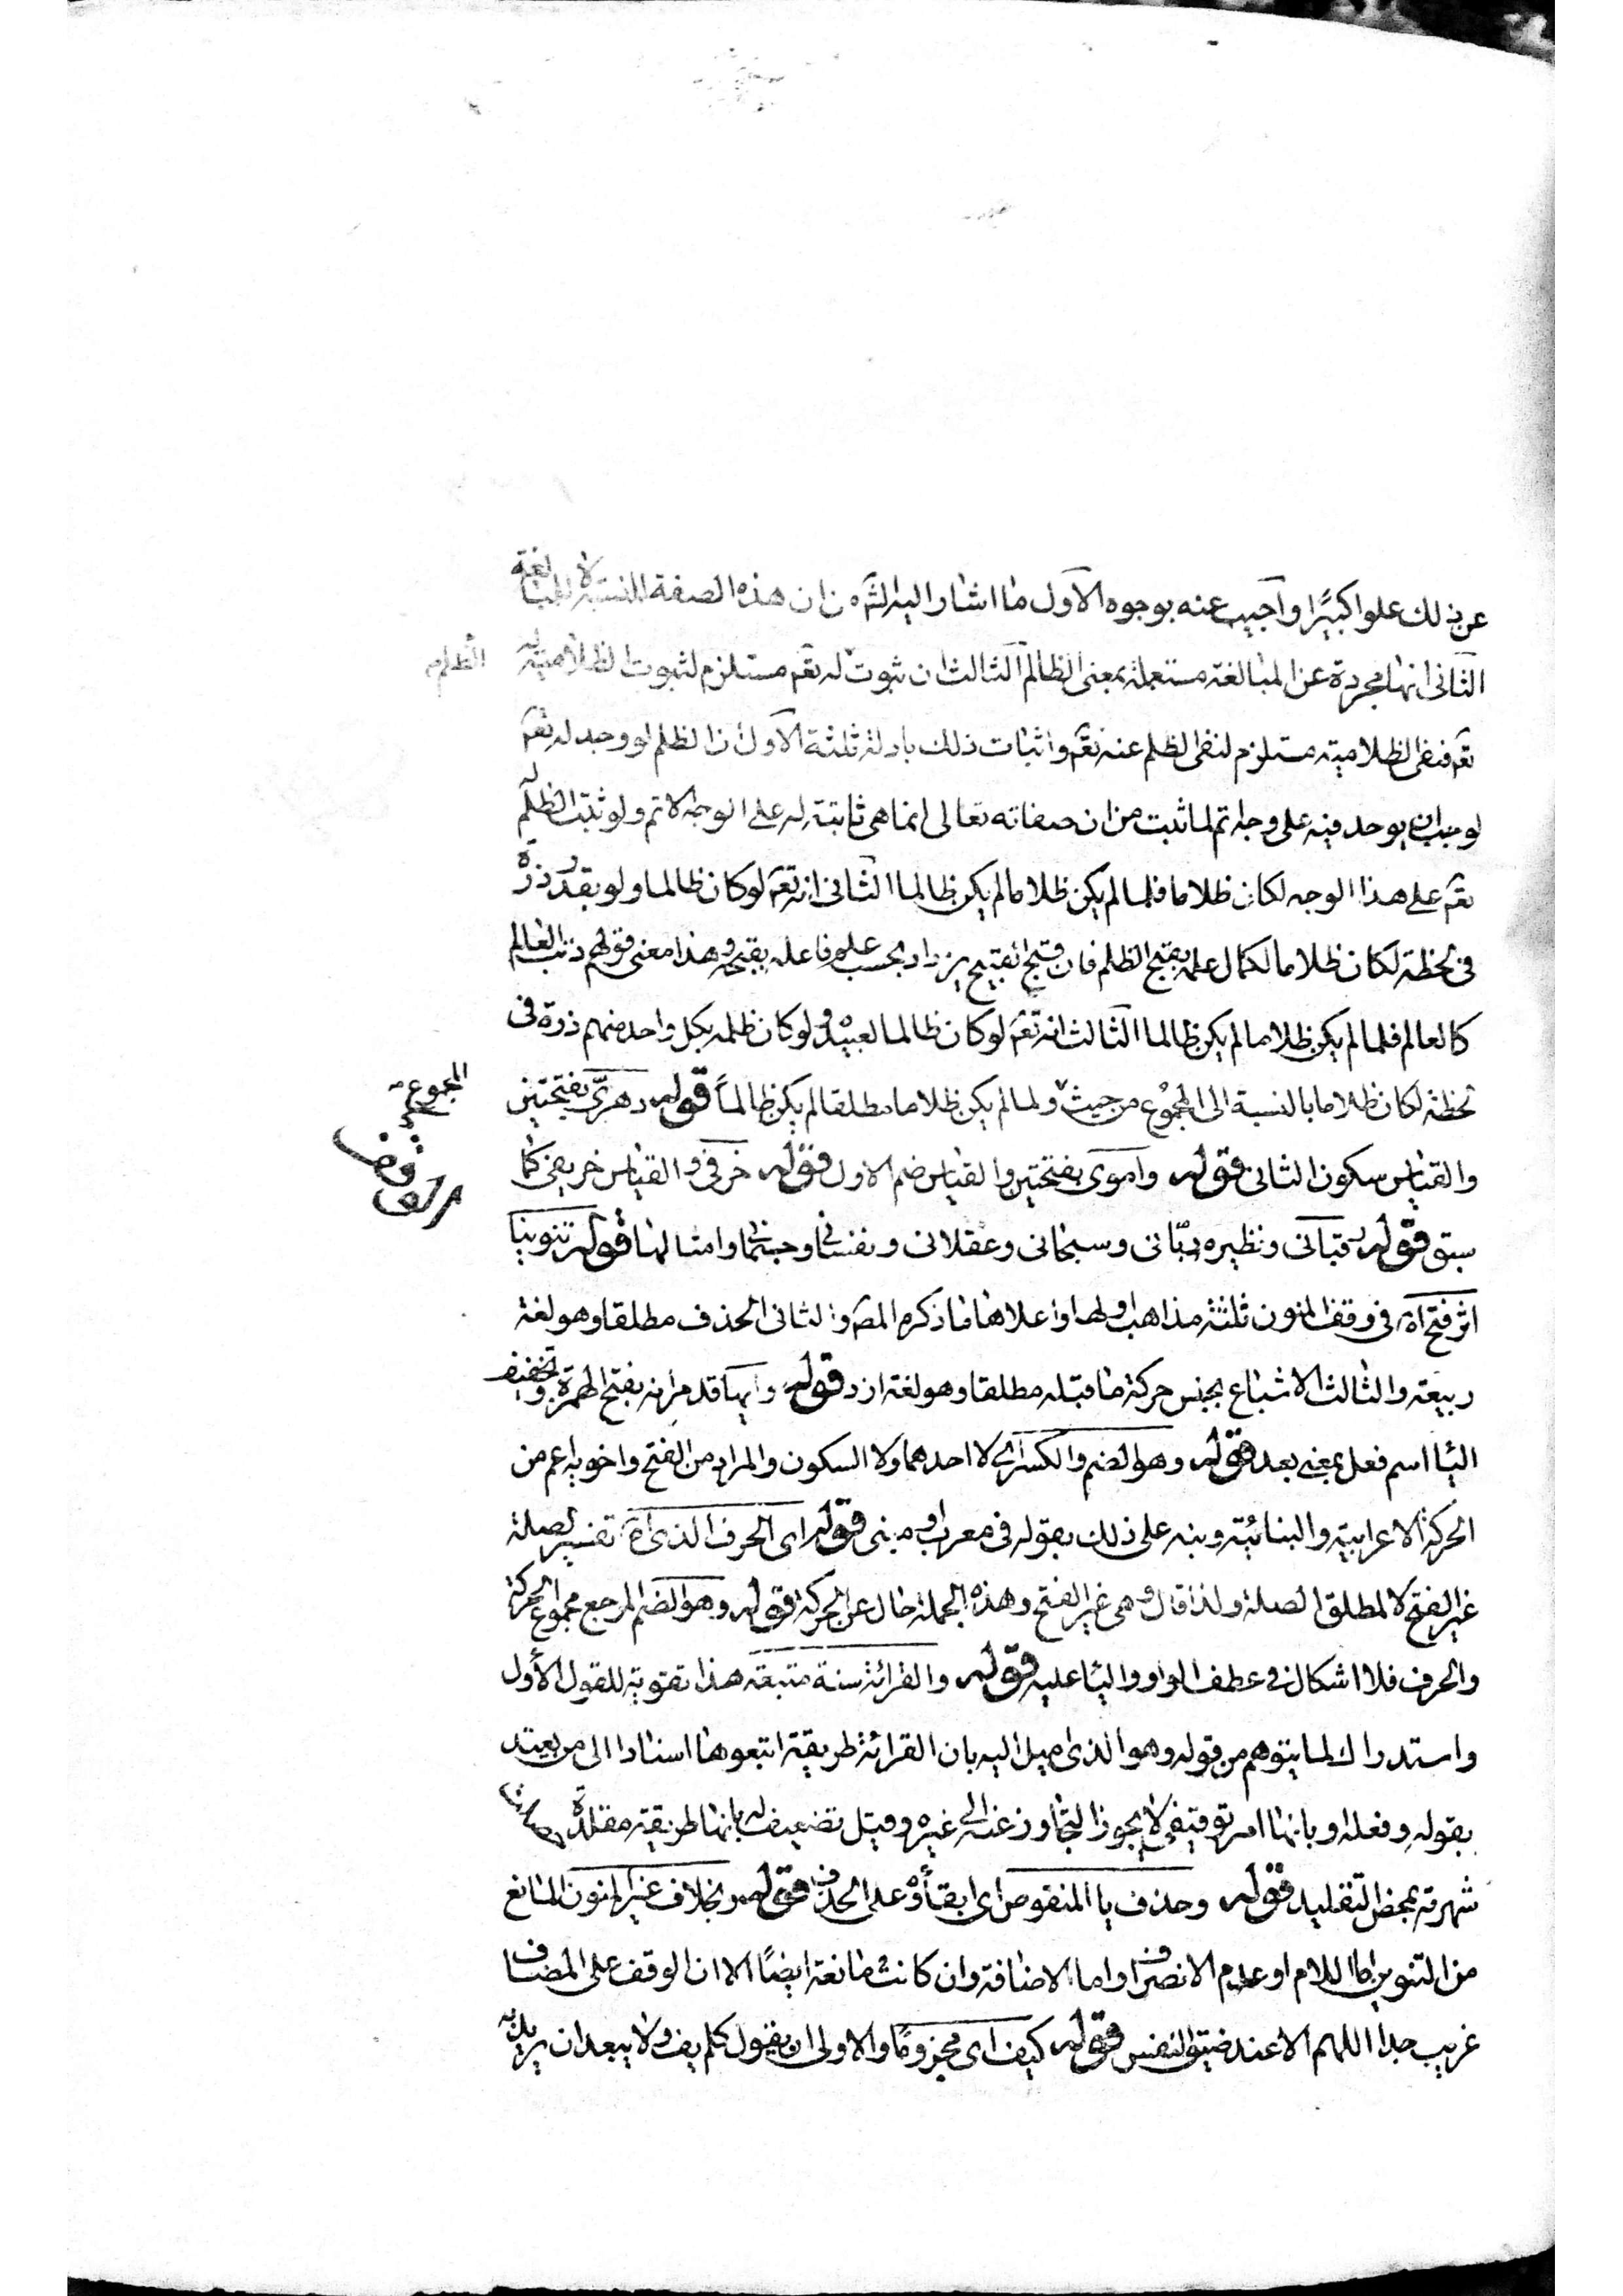 عن ذلك علوا كبيرًا واجيب عنه بوجوه الاول ما اشار اليه الش من ان هذه الصفة للنسبة لا للمبالغة
الثانى انها مجردة عن المبالغة مستعملة بمعنى الظالم الثالث ان ثبوت له تعم مستلزم لثبوت الظلامية له
الظلم
تعم فنفى الظلامية مستلزم لنفى الظلم عنه تعم واثبات ذلك بادلة ثلثة الاول ان الظلم لو وجد له تعم
لوجب ان يوجد فيه على وجه اتم لما ثبت من ان صفاته تعالى انما هى ثابتة له على الوجه الاتم ولو ثبت الظلم له
تعم على هذا الوجه لكان ظلاما فلما لم يكن ظلاما لم يكن ظالما الثانى انه تعم لو كان ظالما ولو بقدر ذرة
فى لحظة لكان ظلاما لكمال علمه بقبح الظلم فان قبح القبيح يزداد بحسب علم فاعله بقبحه وهذا معنى قولهم ذنب العالم
كالعالم فلما لم يكن ظلاما لم يكن ظالما الثالث انه تعم لو كان ظالما لعبيده ولو كان ظلمه بكل واحد منهم ذرة فى
لحظة لكان ظلاما بالنسبة الى المجموع من حيث ولما لم يكن ظلاما مطلقا لم يكن ظالماً قوله دهرىّ بفتحتين
المجموع
والقياس سكون الثانى قوله واموى بفتحتين والقياس ضم الاول قوله خرفى والقياس خريفى كما
الوقف
سبق قوله رقبانى ونظيره ربّانى وسبحانى وعقلانى ونفسانى وجسمانى وامثالها قوله تنوينا
اثر فتح اه فى وقف المنون ثلثة مذاهب اولها واعلاها ما ذكره المص والثانى الحذف مطلقا وهو لغة
ربيعة والثالث الاشباع بجنس حركة ما قبله مطلقا وهو لغة ازد قوله وايها قد مر انه بفتح الهمزة وتخفيف
اليا اسم فعل بمعنى بعد قوله وهو الضم والكسر اى لا احدهما ولا السكون والمراد من الفتح واخويه اعم من
الحركة الاعرابية والبنائية ونبه على ذلك بقوله فى معرب او مبنى قوله اى الحرف الذى اه تفسير لصلة
غير الفتح لا لمطلق الصلة ولذا قال وهى غير الفتح وهذه الجملة حال عن الحركة قوله وهو الضم المرجع مجموع الحركة
والحرف فلا اشكال فى عطف الواو واليا عليه قوله والقرائة سنة متبعة هذا تقوية للقول الأول
واستدراك لما يتوهم من قوله وهو الذى اميل اليه بان القرائة طريقة اتبعوها اسنادا الى من يعتد
بقوله وفعله وبانها امر توقيفى لا يجوز التجاوز عنه الى غيره وقيل تضعيف له بانها طريقة مقلدة
شهرته بمحض التقليد قوله وحذف يا المنقوص اى ابقأوه على الحذف قوله وبخلاف غير المنون المانع
من التنوين اما اللام او عدم الانصراف واما الاضافة وان كانت مانعة ايضًا الا ان الوقف على المضاف
غريب جدا اللهم الا عند ضيق النفس قوله كيف اى مجزومًا والاولى ان يقول كلم يف ولا يبعد ان يريد به